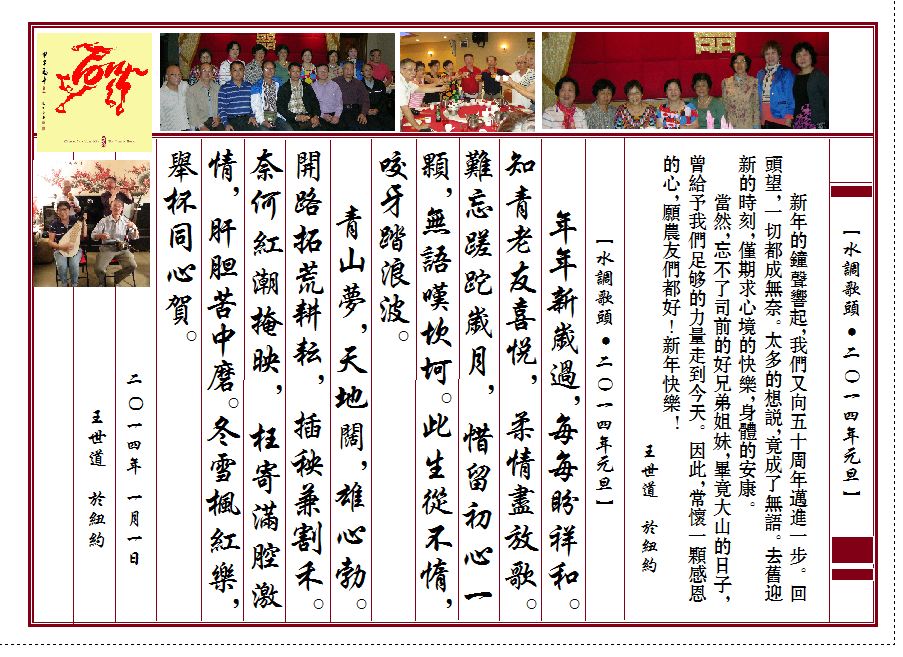 【水調歌頭●二〇一四年元旦】
新年的鐘聲響起，我們又向五十周年邁進一步。回
頭望，一切都成無奈。太多的想說，竟成了無語。去舊迎
新的時刻，僅期求心境的快樂，身體的安康。
當然，忘不了司前的好兄弟姐妹，畢竟大山的日子，
曾給予我們足够的力量走到今天。因此，常懷一顆感恩
的心，願農友們都好！新年快樂！
王世道 於紐約
【水調歌頭●二〇一四年元旦】
年年新歲過，每每盼祥和。
知青老友喜悅，柔情盡放歌。
難忘蹉跎歲月，惜留初心一
顆，無語嘆坎坷。此生從不惰，
咬牙踏浪波。
青山夢，天地闊，雄心勃。
開路拓荒耕耘，插秧兼割禾。
奈何紅潮掩映，枉寄滿腔激
情，肝胆苦中磨。冬雪楓紅樂，
舉杯同心賀。
二〇一四年 一月一日
王世道 於紐約